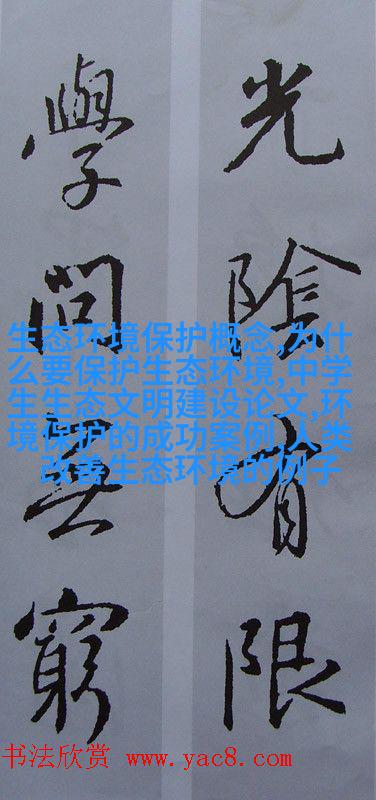 光陰有限
學問無窮
生态环境保护概念,为什
么要保护生态环境,中学
生生态文明建设论文,环
境保护的成功案例,人类
改善生态环境的例子
书法欣赏 www.yac8.com